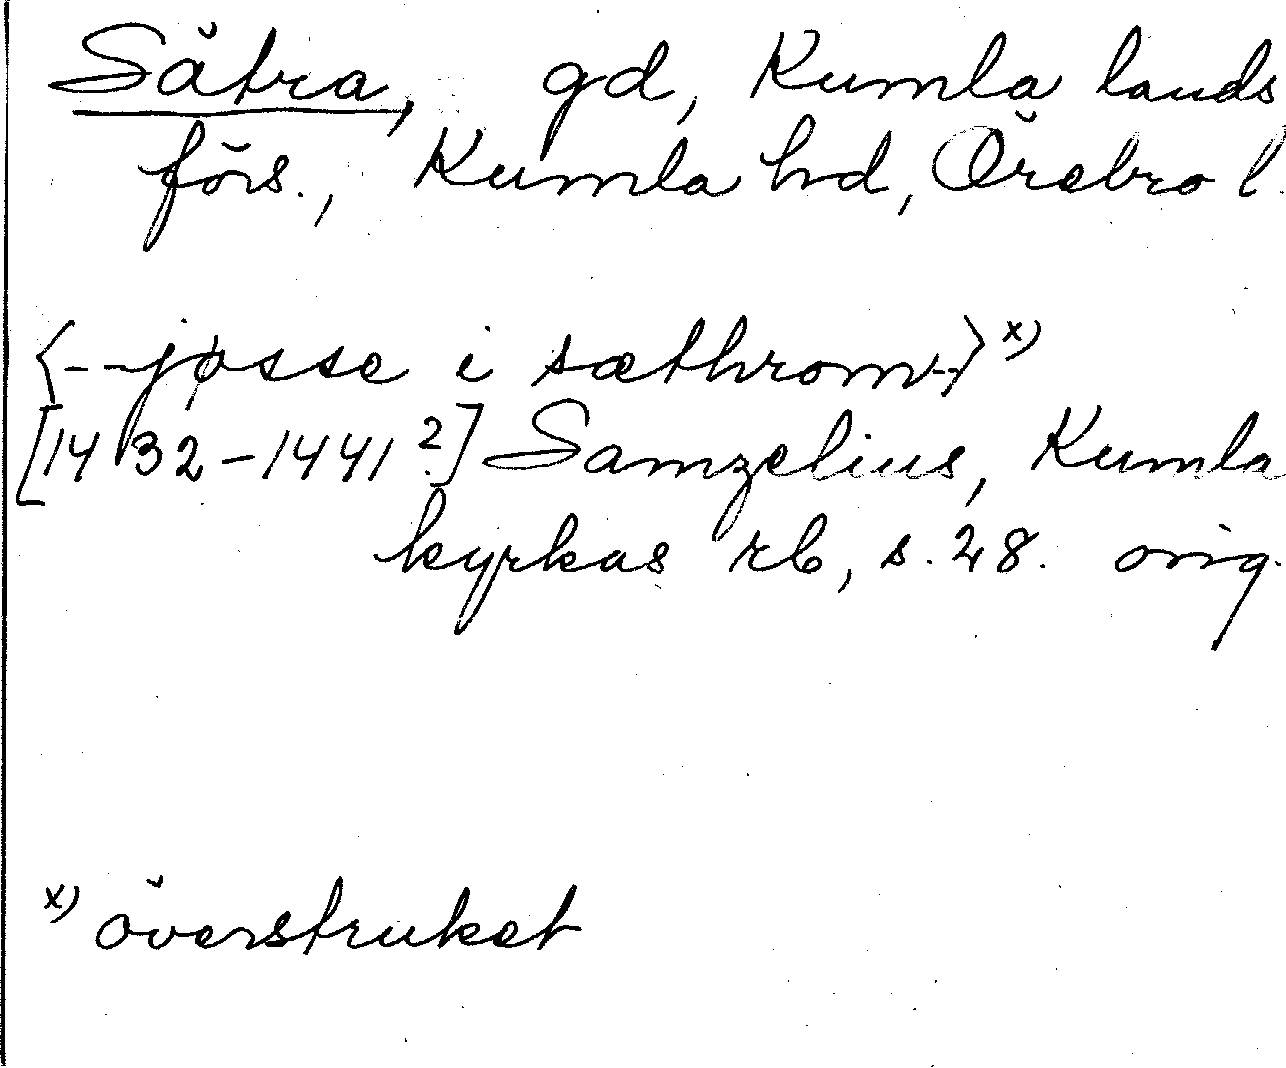 Sätra, gd, Kumla lands
förs., Kumla hd, Örebro l.
⟨--jøsse i sæthrom-⟩ x)
[1432-1441?] Samzelius, Kumla
kyrkas rb, s. 28. orig.
x) överstruket